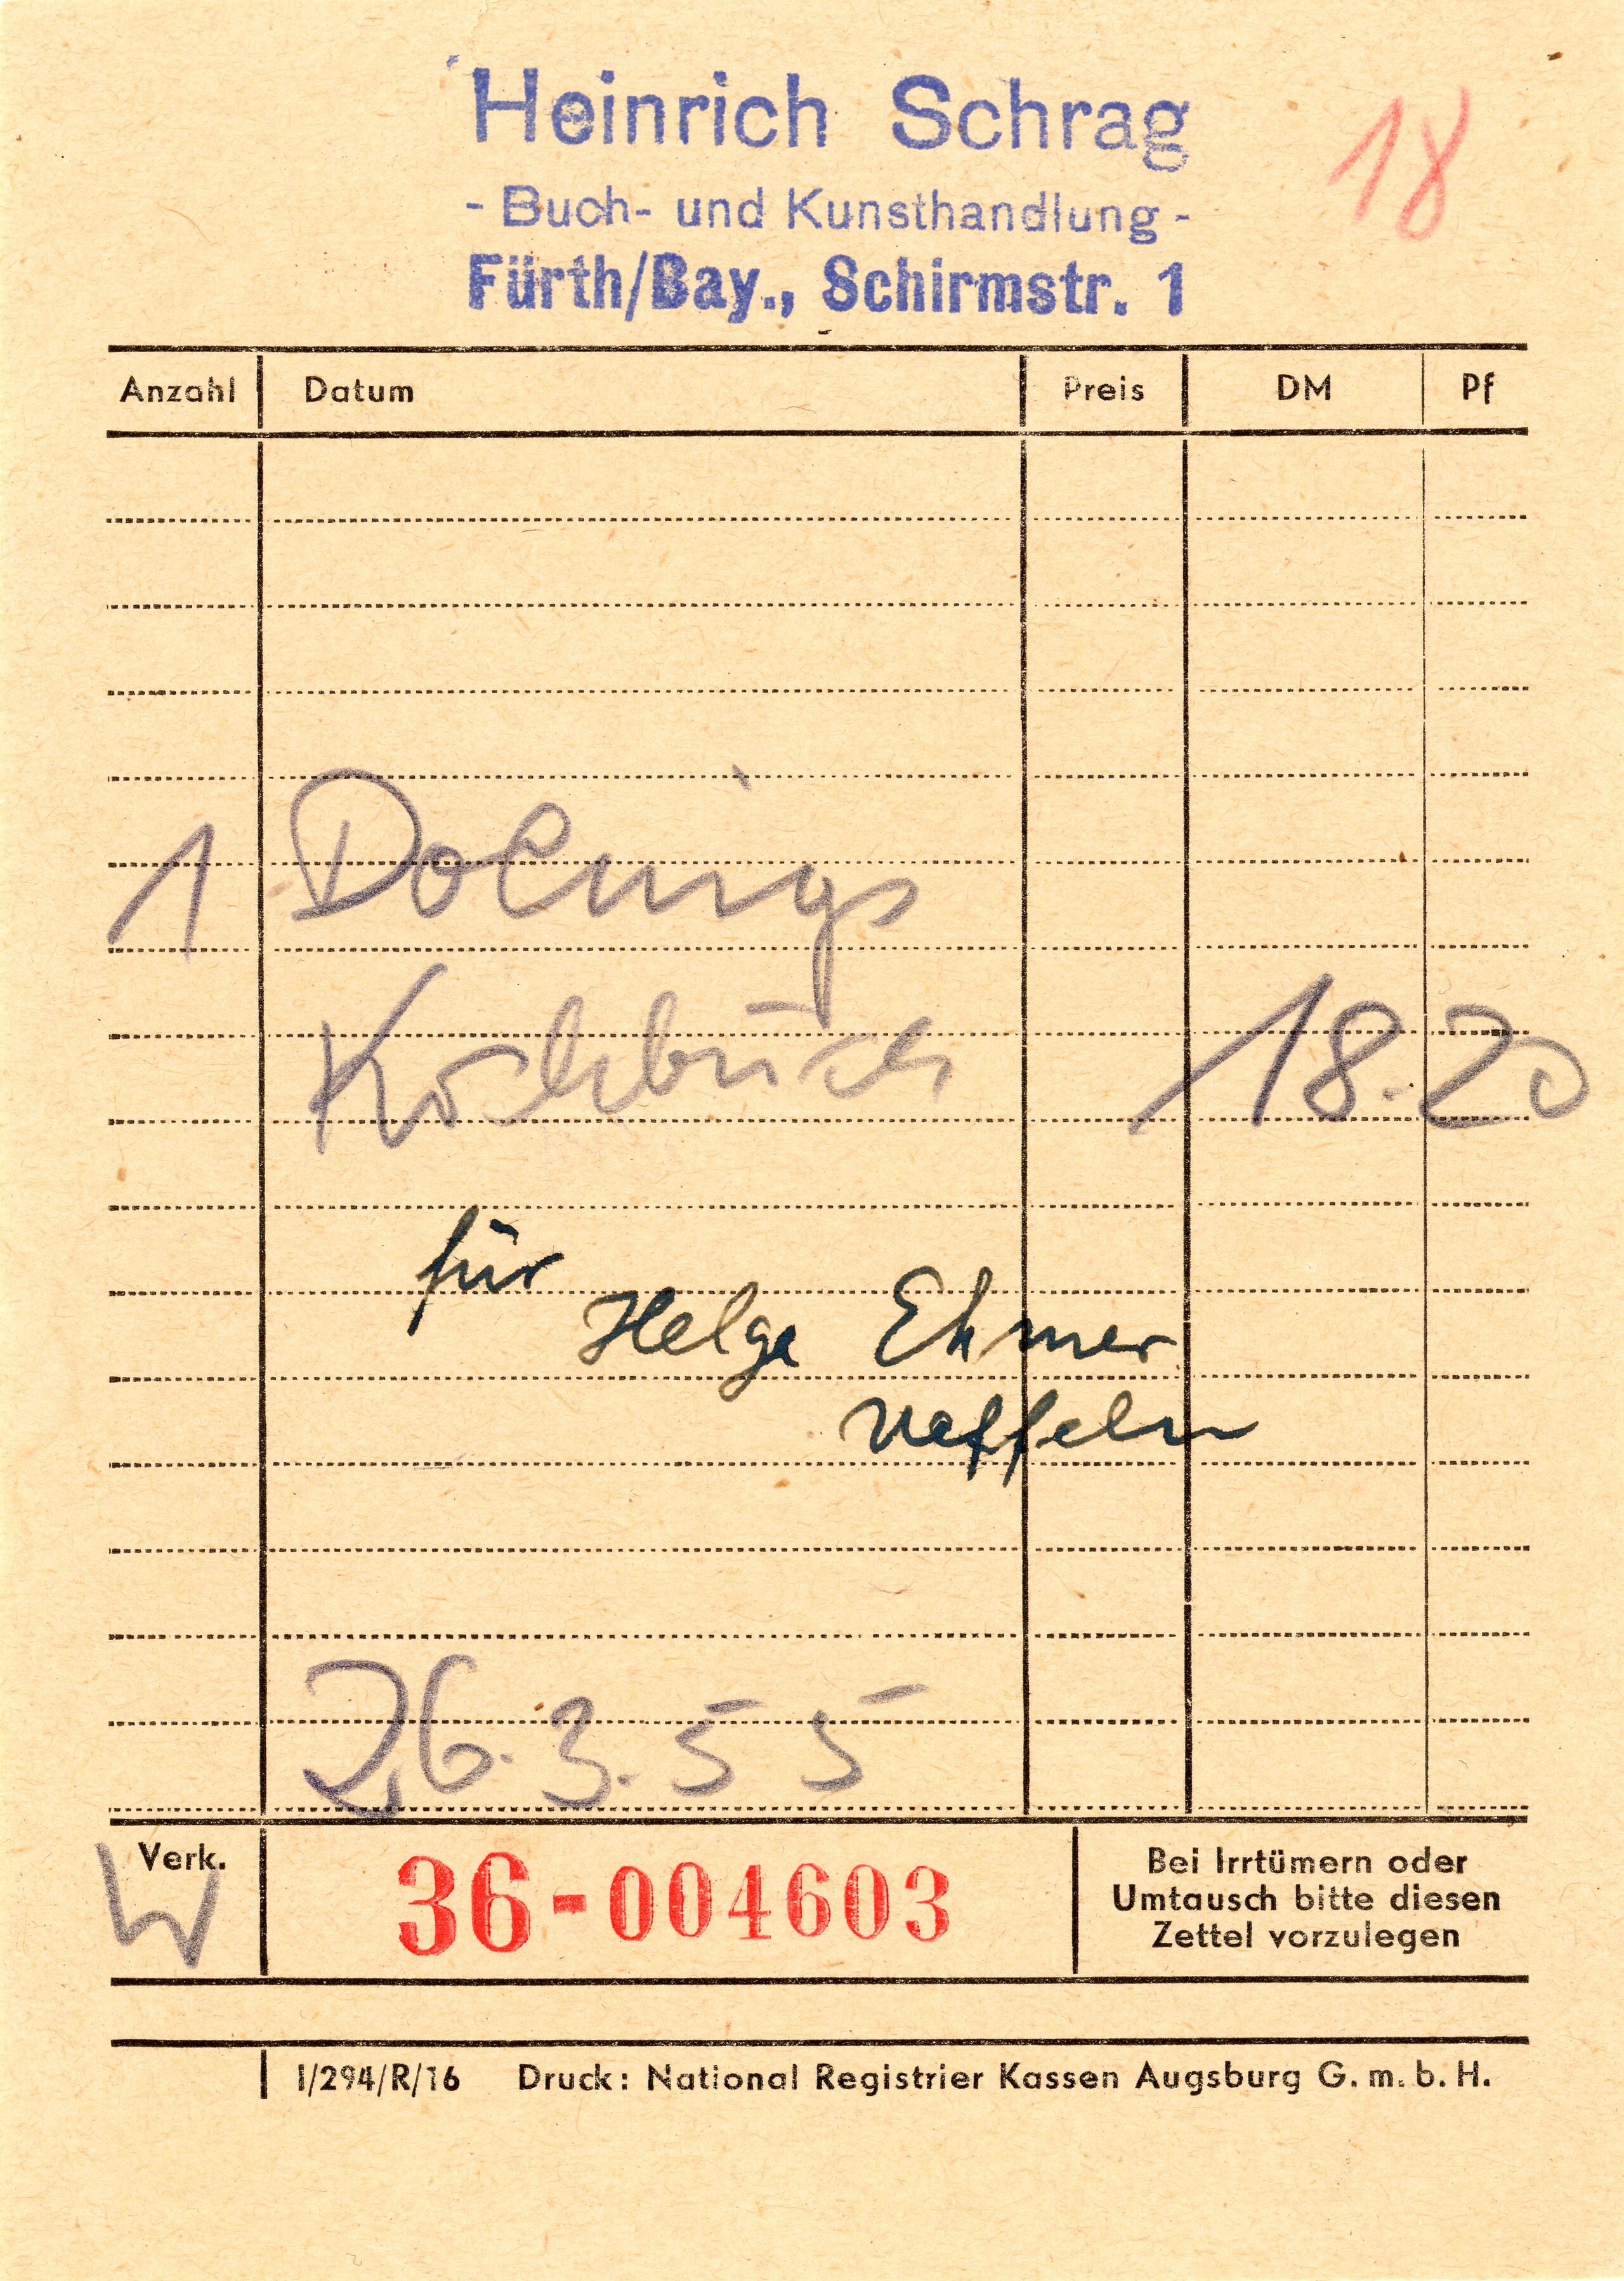 Heinrich Schrag
- Buch- und Kunsthandlung -
Fürth/Bay., Schirmstr. 1
18
Anzahl Datum Preis DM Pf
1
Kochbuch 18.20
für
Helga Ehmer
26.3.55
Verk.
W
36-004603
Bei Irrtümern oder
Umtausch bitte diesen
Zettel vorzulegen
I/294/R/16 Druck: National Registrier Kassen Augsburg G.m.b.H.